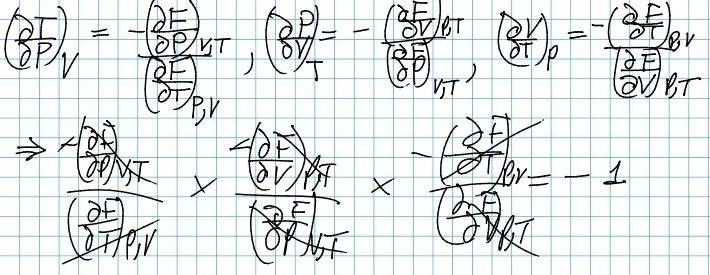 (∂T/∂P)_V = -(∂F/∂P)_V,T / (∂F/∂T)_P,V , (∂P/∂V)_T = -(∂F/∂V)_P,T / (∂F/∂P)_V,T , (∂V/∂T)_P = -(∂F/∂T)_P,V / (∂F/∂V)_P,T
⇒ -(∂F/∂P)_V,T / (∂F/∂T)_P,V × -(∂F/∂V)_P,T / (∂F/∂P)_V,T × -(∂F/∂T)_P,V / (∂F/∂V)_P,T = - 1